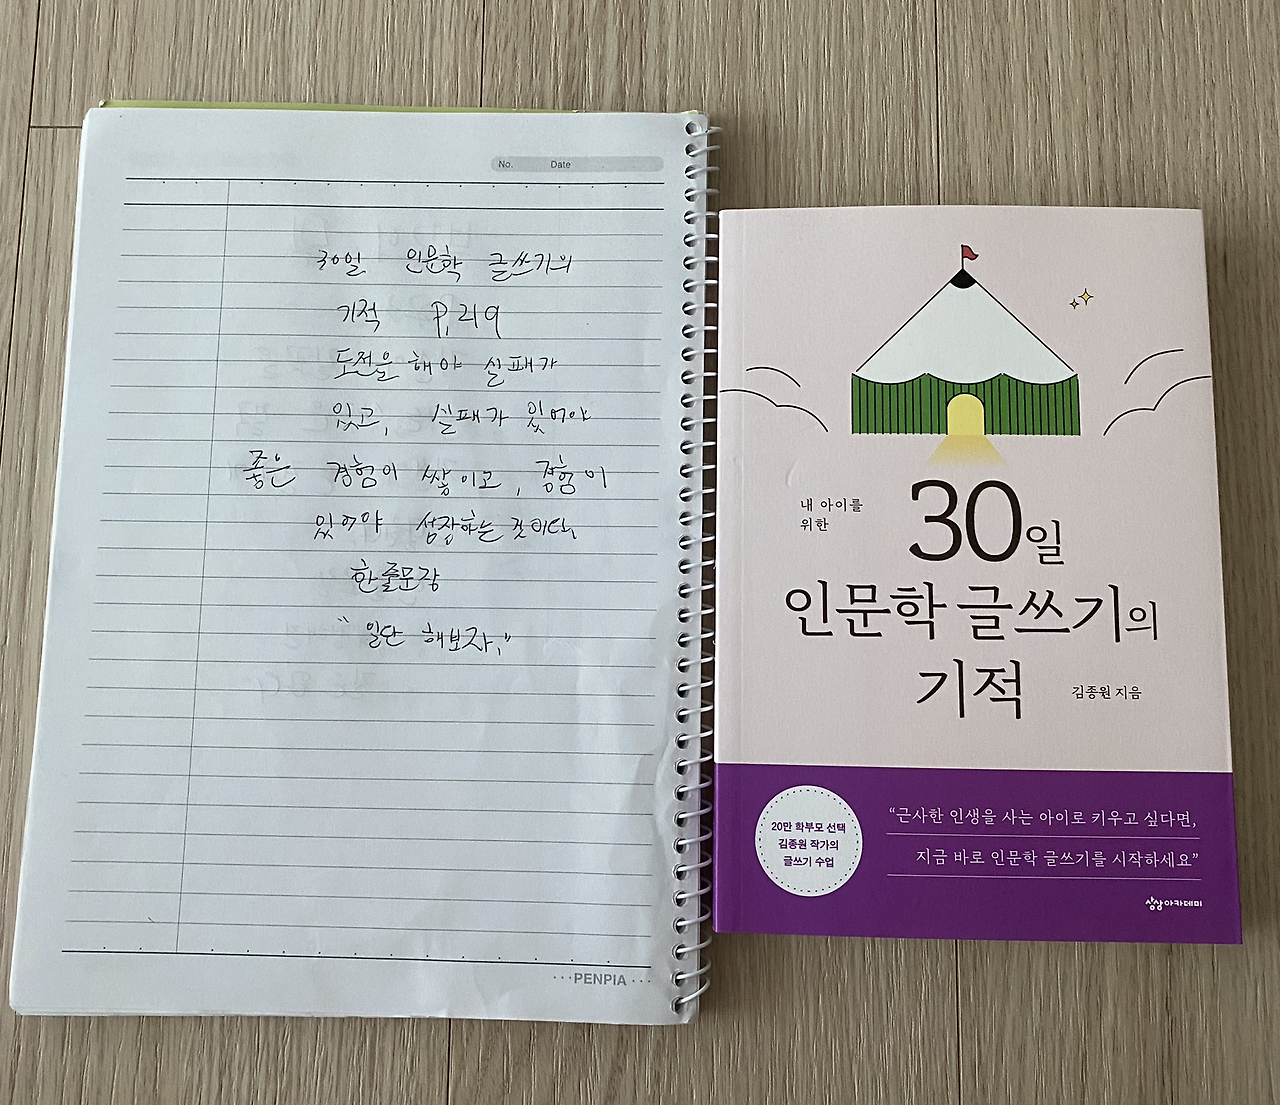 No. Date
30일 인문학 글쓰기의
기적 P.219
도전을 해야 실패가
있고, 실패가 있어야
좋은 경험이 쌓이고, 경험이
있어야 성장하는 것이다
한줄문장
“일단 해보자."
···PENPIA···
내 아이를
위한
30일
인문학 글쓰기의
기적
김종원 지음
20만 학부모 선택
김종원 작가의
글쓰기 수업
“근사한 인생을 사는 아이로 키우고 싶다면,
지금 바로 인문학 글쓰기를 시작하세요”
상상아카데미